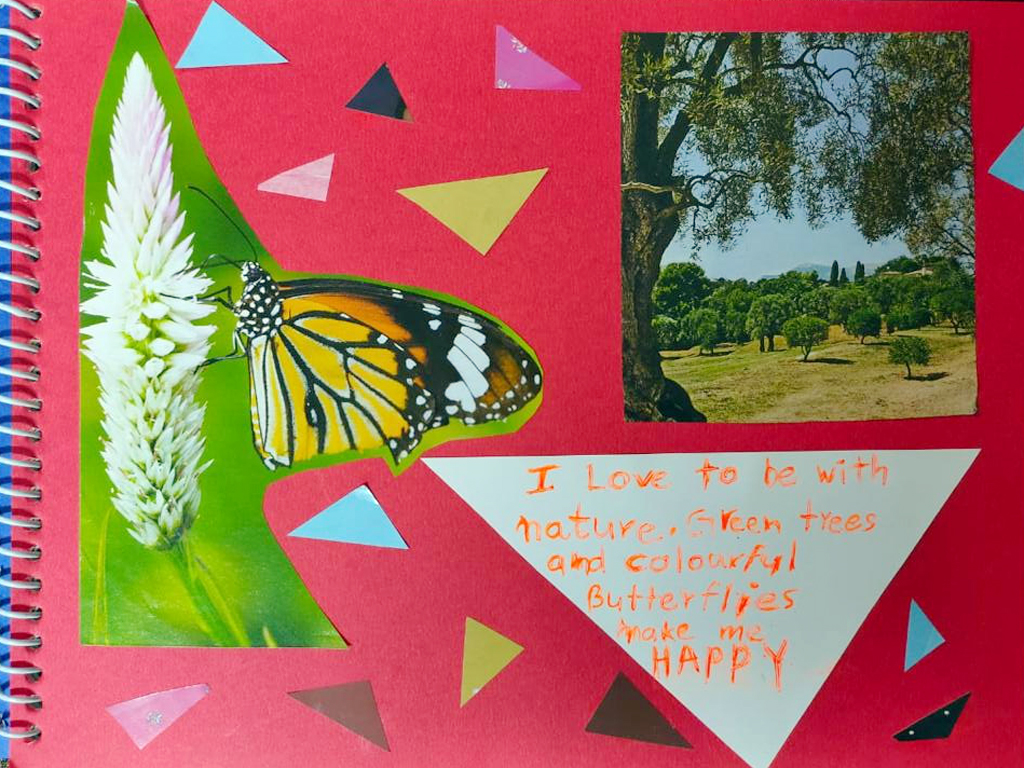 I Love to be with
nature. Green trees
and colourful
Butterflies
make me
HAPPY